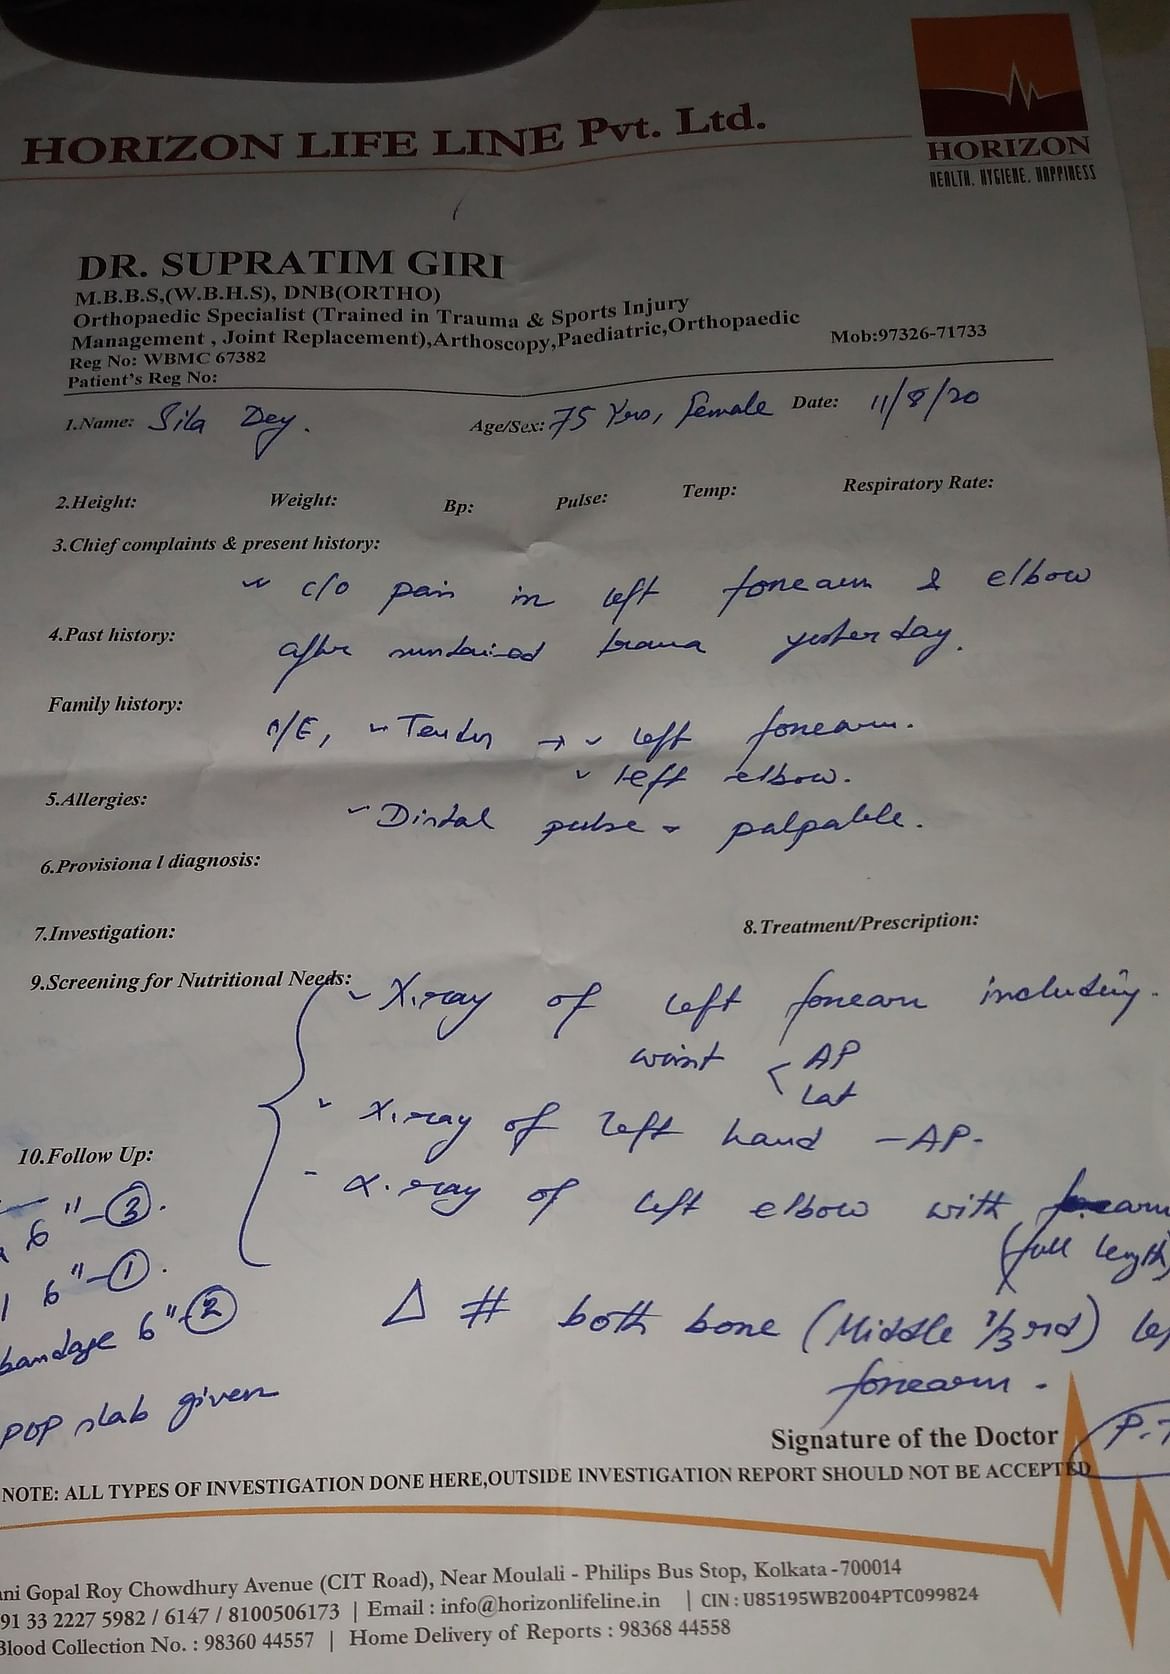 HORIZON LIFE LINE Pvt. Ltd.
HORIZON
HEALTH. HYGIENE. HAPPINESS
DR. SUPRATIM GIRI
M.B.B.S,(W.B.H.S), DNB(ORTHO)
Orthopaedic Specialist (Trained in Trauma & Sports Injury
Management , Joint Replacement),Arthoscopy,Paediatric,Orthopaedic
Mob:97326-71733
Reg No: WBMC 67382
Patient's Reg No:
1.Name: Sila Dey. Age/Sex: 75 Yrs, Female Date: 11/8/20
2.Height: Weight: Bp: Pulse: Temp: Respiratory Rate:
3.Chief complaints & present history:
c/o pain in left forearm & elbow
4.Past history: after sustained trauma yesterday.
Family history:
O/E, Tender → left forearm.
left elbow.
5.Allergies:
Distal pulse - palpable.
6.Provisiona l diagnosis:
7.Investigation: 8.Treatment/Prescription:
9.Screening for Nutritional Needs:
X.ray of left forearm including
wrist < AP
Lat
X.ray of left hand - AP-
10.Follow Up:
X.ray of left elbow with forearm
(full length)
6" - 3.
6" - 1.
bandage 6" - 2
Δ # both bone (Middle 1/3rd)
forearm.
POP slab given
Signature of the Doctor
NOTE: ALL TYPES OF INVESTIGATION DONE HERE,OUTSIDE INVESTIGATION REPORT SHOULD NOT BE ACCEPTED
ni Gopal Roy Chowdhury Avenue (CIT Road), Near Moulali - Philips Bus Stop, Kolkata -700014
91 33 2227 5982 / 6147 / 8100506173 | Email : info@horizonlifeline.in | CIN : U85195WB2004PTC099824
Blood Collection No. : 98360 44557 | Home Delivery of Reports : 98368 44558